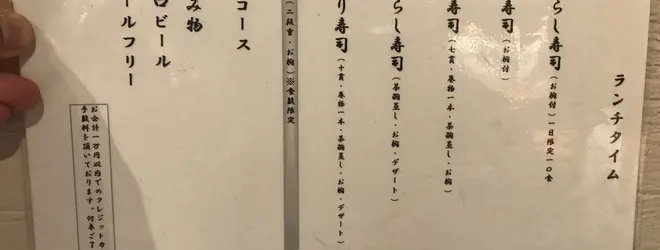 ランチタイム
らし寿司（お椀付）一日限定一〇食
寿司（お椀付）
寿司（七貫・巻物一本・茶碗蒸し・お椀）
らし寿司（茶碗蒸し・お椀・デザート）
り寿司（十貫・巻物一本・茶碗蒸し・お椀・デザート）
（二段重・お椀）※食数限定
コース
み物
ロビール
ールフリー
お会計一万円以内でのクレジットカ
手数料を頂いております。何卒ご了